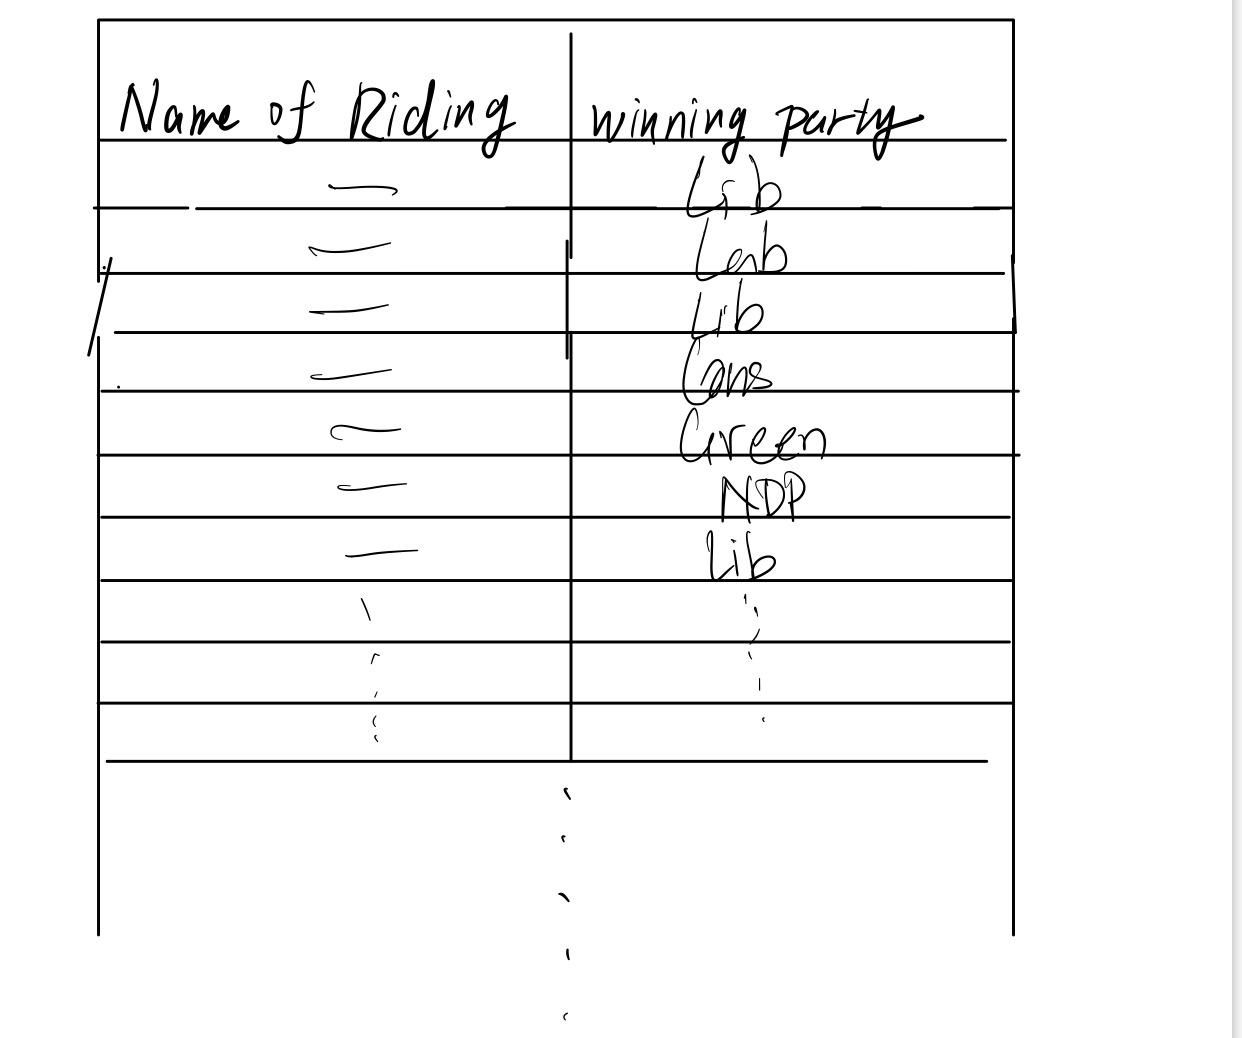 Name of Riding winning party
Lib
Lib
Cons
Green
NDP
Lib